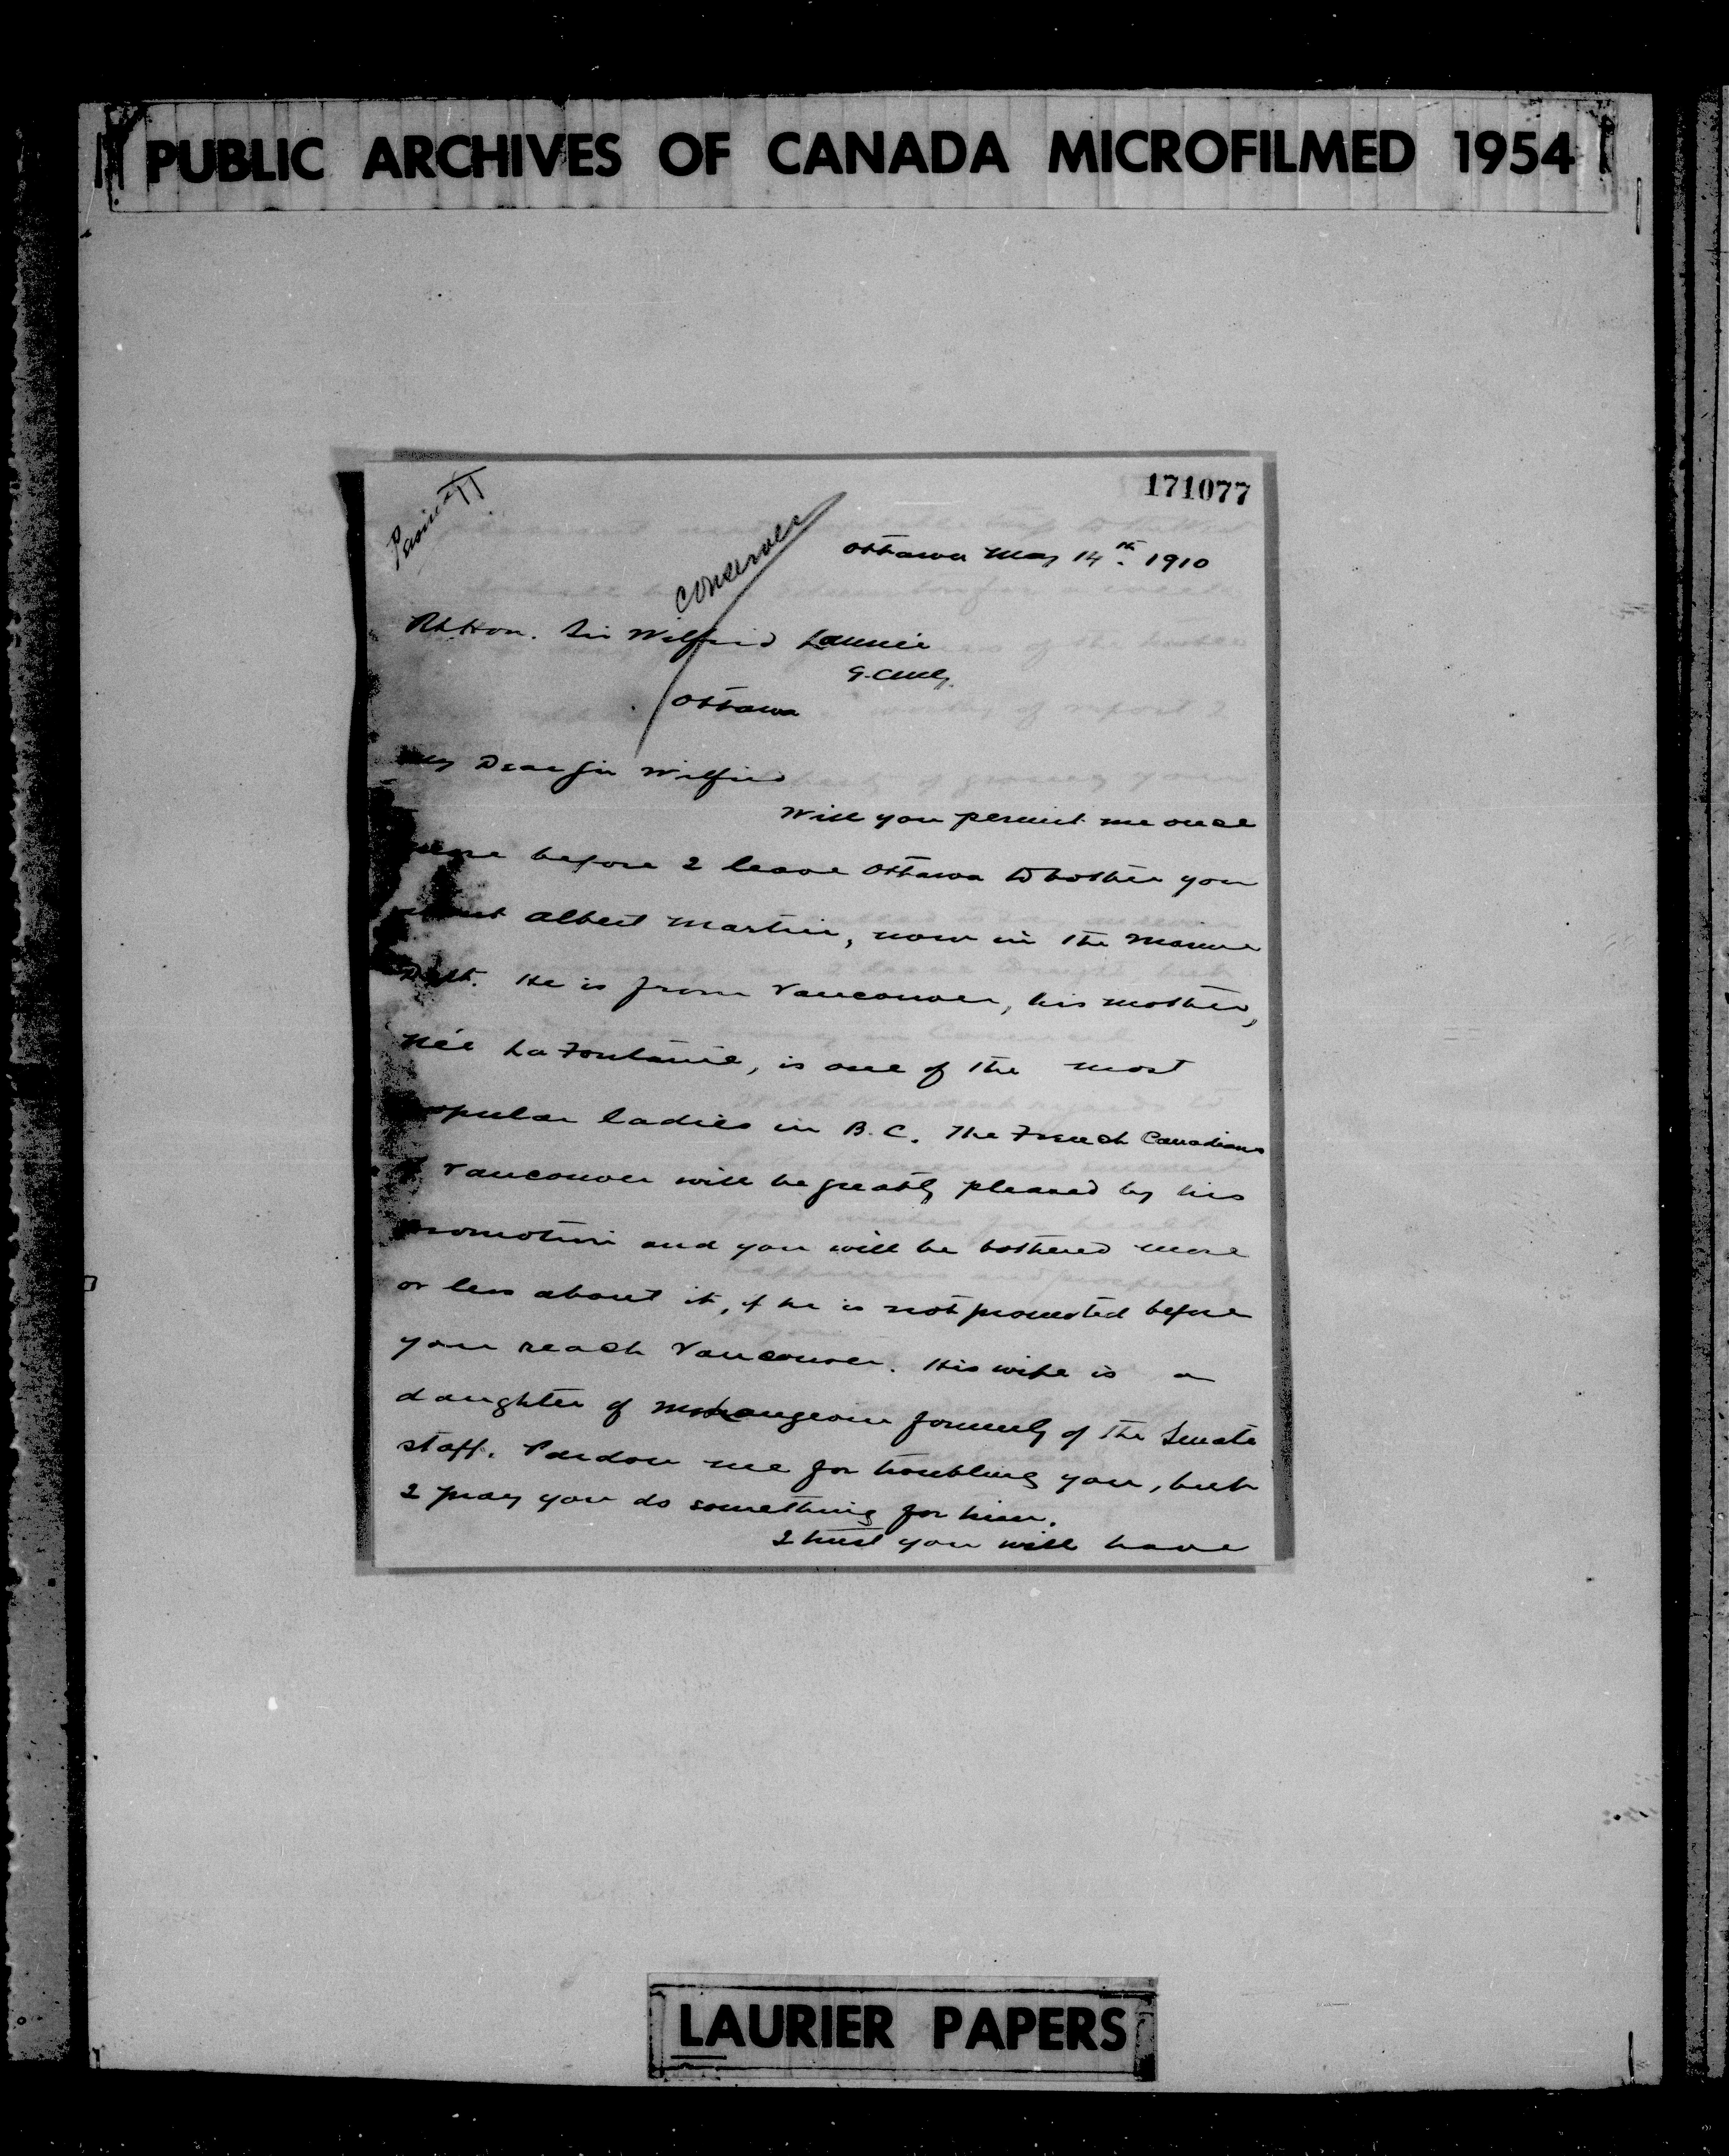 PUBLIC ARCHIVES OF CANADA MICROFILMED 1954
171077
conserver
Ottawa May 14th. 1910
Rt. Hon. Sir Wilfrid Laurier
G.C.M.G.
Ottawa
My Dear Sir Wilfrid
Will you permit me once
more before I leave Ottawa to bother you
about Albert Martin, now in the Marine
Dept. He is from Vancouver, his mother,
née La Fontaine, is one of the most
popular ladies in B.C. The French Canadians
of Vancouver will be greatly pleased by his
promotion and you will be bothered more
or less about it, if he is not promoted before
you reach Vancouver. His wife is a
daughter of formerly of the Senate
staff. Pardon me for troubling you, but
I pray you do something for him.
I trust you will have
LAURIER PAPERS